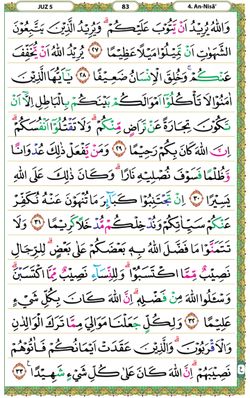 JUZ 5 83 4. An-Nisā'
وَاللّٰهُ يُرِيْدُ اَنْ يَّتُوْبَ عَلَيْكُمْ ۗ وَيُرِيْدُ الَّذِيْنَ يَتَّبِعُوْنَ
الشَّهَوٰتِ اَنْ تَمِيْلُوْا مَيْلًا عَظِيْمًا ٢٧ يُرِيْدُ اللّٰهُ اَنْ يُّخَفِّفَ
عَنْكُمْ ۚ وَخُلِقَ الْاِنْسَانُ ضَعِيْفًا ٢٨ يٰٓاَيُّهَا الَّذِيْنَ
اٰمَنُوْا لَا تَأْكُلُوْٓا اَمْوَالَكُمْ بَيْنَكُمْ بِالْبَاطِلِ اِلَّآ اَنْ
تَكُوْنَ تِجَارَةً عَنْ تَرَاضٍ مِّنْكُمْ ۗ وَلَا تَقْتُلُوْٓا اَنْفُسَكُمْ ۗ
اِنَّ اللّٰهَ كَانَ بِكُمْ رَحِيْمًا ٢٩ وَمَنْ يَّفْعَلْ ذٰلِكَ عُدْوَانًا
وَّظُلْمًا فَسَوْفَ نُصْلِيْهِ نَارًا ۗ وَكَانَ ذٰلِكَ عَلَى اللّٰهِ
يَسِيْرًا ٣٠ اِنْ تَجْتَنِبُوْا كَبَاۤىِٕرَ مَا تُنْهَوْنَ عَنْهُ نُكَفِّرْ
عَنْكُمْ سَيِّاٰتِكُمْ وَنُدْخِلْكُمْ مُّدْخَلًا كَرِيْمًا ٣١ وَلَا
تَتَمَنَّوْا مَا فَضَّلَ اللّٰهُ بِهٖ بَعْضَكُمْ عَلٰى بَعْضٍ ۗ لِلرِّجَالِ
نَصِيْبٌ مِّمَّا اكْتَسَبُوْا ۗ وَلِلنِّسَاۤءِ نَصِيْبٌ مِّمَّا اكْتَسَبْنَ ۗ
وَسْـَٔلُوا اللّٰهَ مِنْ فَضْلِهٖ ۗ اِنَّ اللّٰهَ كَانَ بِكُلِّ شَيْءٍ
عَلِيْمًا ٣٢ وَلِكُلٍّ جَعَلْنَا مَوَالِيَ مِمَّا تَرَكَ الْوَالِدٰنِ
وَالْاَقْرَبُوْنَ ۗ وَالَّذِيْنَ عَقَدَتْ اَيْمَانُكُمْ فَاٰتُوْهُمْ
نَصِيْبَهُمْ ۗ اِنَّ اللّٰهَ كَانَ عَلٰى كُلِّ شَيْءٍ شَهِيْدًا ٣٣